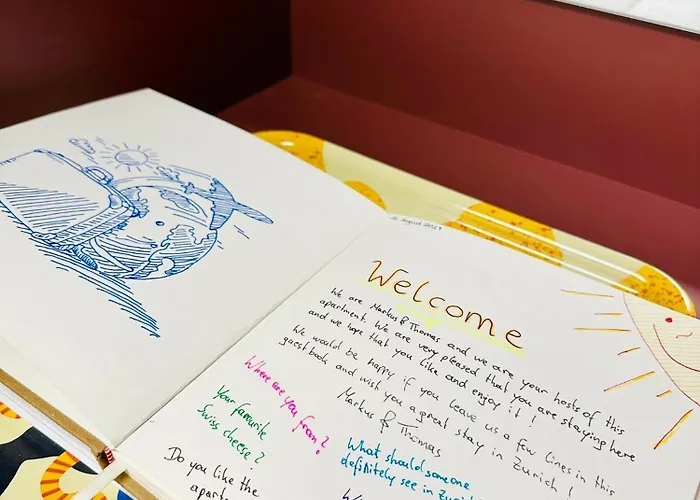 August 2021
Welcome
We are Markus & Thomas and we are your hosts of this
apartment. We are very pleased that you are staying here
and we hope that you like and enjoy it !
We would be happy if you leave us a few lines in this
guest book and wish you a great stay in Zurich !
Markus & Thomas
Where are you from?
Your favourite
Swiss cheese?
What should someone
definitely see in
Do you like the